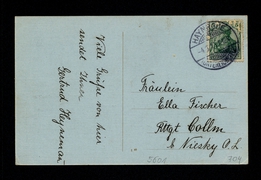 Viele Grüße von hier
sendet Ihnen
Gertrud Heyneman
HAYNAU
Fräulein
Ella Fischer
Rttgt Collm
b Niesky O. L.